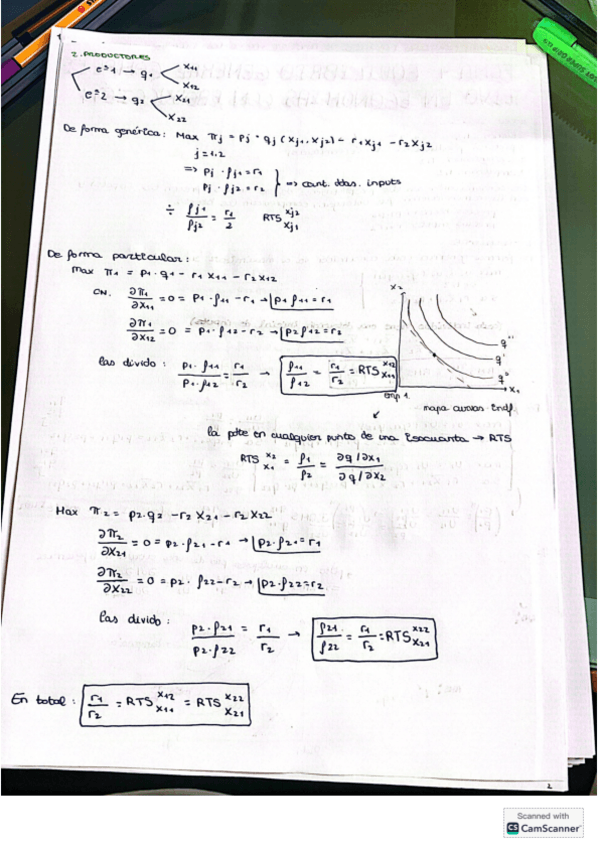 2. PRODUCTORES
eª1 → q1 < x11
x12
eª2 → q2 < x21
x22
De forma genérica: Max πj = pj · qj (xj1, xj2) - r1xj1 - r2xj2
j=1,2
=> pj · fj1 = r1
pj · fj2 = r2 } => cont. ddas. inputs
÷ fj1/fj2 = r1/2 RTS xj2 xj1
De forma particular:
Max π1 = p1·q1 - r1x11 - r2x12
∂π1/∂x11 = 0 = p1·f11 - r1 → p1 f11 = r1
∂π1/∂x12 = 0 = p1·f12 - r2 → p2 f12 = r2
las divido: p1·f11/p1·f12 = r1/r2 → f11/f12 = r1/r2 = RTS x12 x11
x2
q''
q'
q°
x1
mapa curvas Indf.
la pdte en cualquier punto de una Isocuanta → RTS
RTS x2 x1 = f1/f2 = ∂q/∂x1 / ∂q/∂x2
Max π2 = p2·q2 - r2x21 - r2x22
∂π2/∂x21 = 0 = p2·f21 - r1 → p2·f21 = r1
∂π2/∂x22 = 0 = p2·f22 - r2 → p2·f22 = r2
las divido: p2·f21/p2·f22 = r1/r2 → f21/f22 = r1/r2 = RTS x22 x21
En total: r1/r2 = RTS x12 x11 = RTS x22 x21
2
Scanned with
CS CamScanner